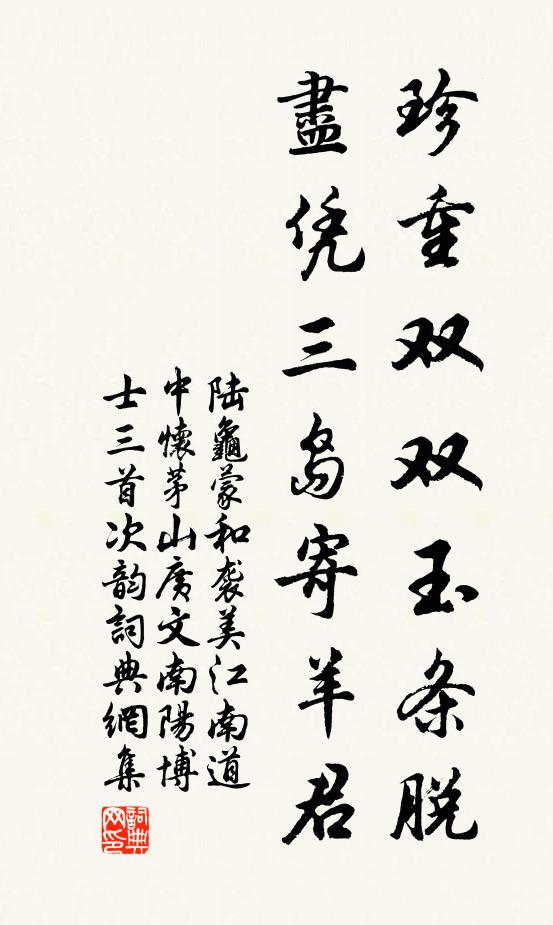 珍重双双玉条脱
盡凭三岛寄羊君
陆龜蒙和袭美江南道
中懷茅山广文南陽博
士三首次韵詞典網集
詞典網印